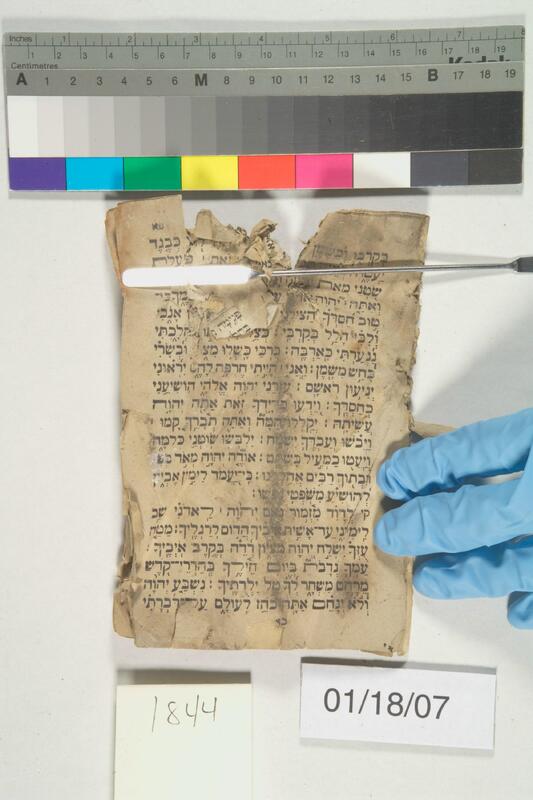 Inches 1 2 3 4 5 6 7 8
1 2 3 4 5 6 7 8 9 10 11 12 13 14 15 16 17 18 19
Centimetres Kodak
A 1 2 3 4 5 6 M 8 9 10 11 12 13 14 15 B 17 18 19
עא
בקרבו כבגד
פעלת
שטני מאת
ואתה יהוה
טוב חסדך אנכי
ולבי חלל בקרבי
ננערתי כארבה: ברכי כשלו ובשרי
כחש משמן: ואני הייתי חרפה להם יראוני
יניעון ראשם: עזרני יהוה אלהי הושיעני
כחסדך: וידעו כי ידך זאת אתה יהוה
עשיתה: יקללו המה ואתה תברך קמו
ויבשו ועבדך ישמח: ילבשו שוטני כלמה
ויעטו כמעיל בשתם: אודה יהוה מאד בפי
ובתוך רבים אהללנו: כי יעמד לימין אביון
להושיע משפטי נפשו:
קי לדוד מזמור נאם יהוה לאדני שב
לימיני עד־אשית איביך הדום לרגליך: מטה
עזך ישלח יהוה מציון רדה בקרב איביך:
עמך נדבת ביום חילך בהדרי־קדש
מרחם משחר לך טל ילדתיך: נשבע יהוה
ולא ינחם אתה כהן לעולם על־דברתי
1844
01/18/07